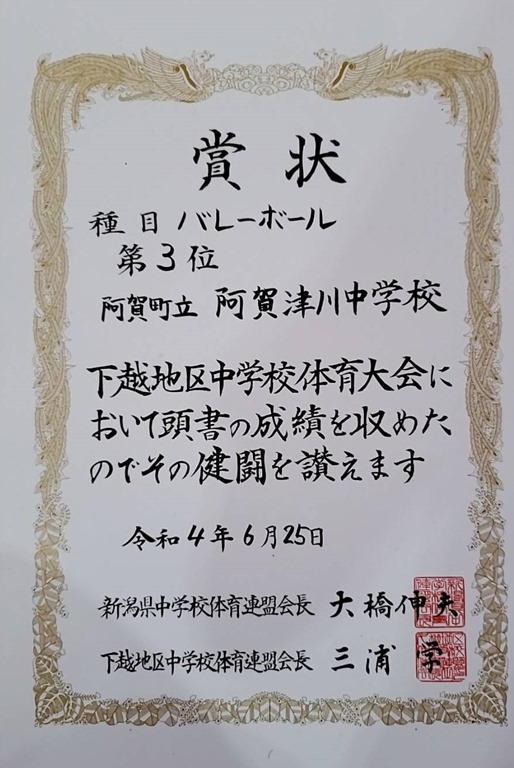 賞状
種目 バレーボール
第3位
阿賀町立 阿賀津川中学校
下越地区中学校体育大会に
おいて頭書の成績を収めた
のでその健闘を讃えます
令和4年6月25日
新潟県中学校体育連盟会長 大橋伸夫
下越地区中学校体育連盟会長 三浦 学